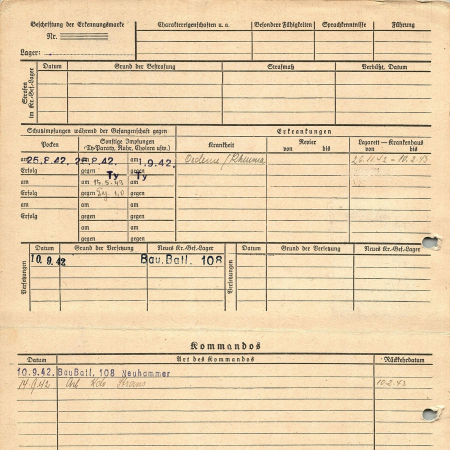 Beschriftung der Erkennungsmarke
Nr.
Lager:
Charaktereigenschaften u. a.
Besondere Fähigkeiten
Sprachkenntnisse
Führung
Strafen im Kr.-Gef.-Lager
Datum
Grund der Bestrafung
Strafmaß
Verbüßt, Datum
Schutzimpfungen während der Gefangenschaft gegen
Erkrankungen
Pocken
Sonstige Impfungen
(Ty-Paraty, Ruhr, Cholera usw.)
Krankheit
Revier
von bis
Lazarett – Krankenhaus
von bis
am 25.8.42. am 25.8.42. am 1.9.42. Oedeme / Rheuma 26.11.42 – 10.2.43
Erfolg gegen Ty gegen Ty
am am 15.5.43 am
Erfolg gegen gegen
am am am
Erfolg gegen gegen
am am
gegen gegen
Versetzungen
Datum
Grund der Versetzung
Neues Kr.-Gef.-Lager
Versetzungen
Datum
Grund der Versetzung
Neues Kr.-Gef.-Lager
10.9.42 Bau.Batl. 108
Kommandos
Datum
Art des Kommandos
Rückkehrdatum
10.9.42. BauBatl. 108 Neuhammer
14.9.42 Arb Kdo 10.2.43